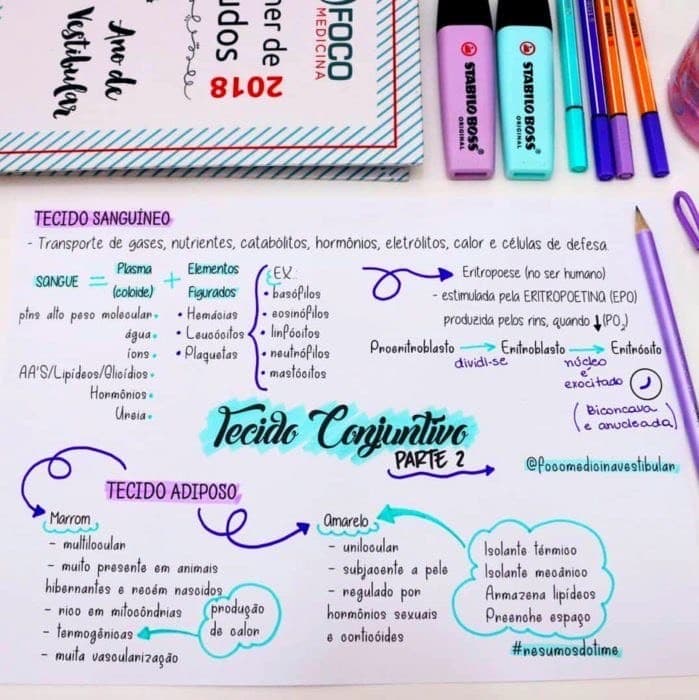 FOCO
MEDICINA
ner de
udos
2018
Ano de
Vestibular
STABILO BOSS
ORIGINAL
STABILO BOSS
ORIGINAL
TECIDO SANGUÍNEO
- Transporte de gases, nutrientes, catabólitos, hormônios, eletrólitos, calor e células de defesa.
SANGUE = Plasma (coloide) + Elementos Figurados
ptns alto peso molecular •
água •
íons •
AA'S/Lipídeos/Glicídios •
Hormônios •
Ureia •
• Hemácias
• Leucócitos
• Plaquetas
EX.:
• basófilos
• eosinófilos
• linfócitos
• neutrófilos
• mastócitos
Eritropoese (no ser humano)
- estimulada pela ERITROPOETINA (EPO)
produzida pelos rins, quando ↓(PO₂)
Proeritroblasto → Eritroblasto → Eritrócito
dividi-se
núcleo
é
exocitado
(Biconcava
e anucleada)
Tecido Conjuntivo
PARTE 2
@focomedicinavestibular
TECIDO ADIPOSO
Marrom
- multilocular
- muito presente em animais
hibernantes e recém nascidos
- rico em mitocôndrias
- termogênicas
- muita vascularização
produção
de calor
Amarelo
- unilocular
- subjacente a pele
- regulado por
hormônios sexuais
e corticóides
Isolante térmico
Isolante mecânico
Armazena lipídeos
Preenche espaço
#resumosdotime